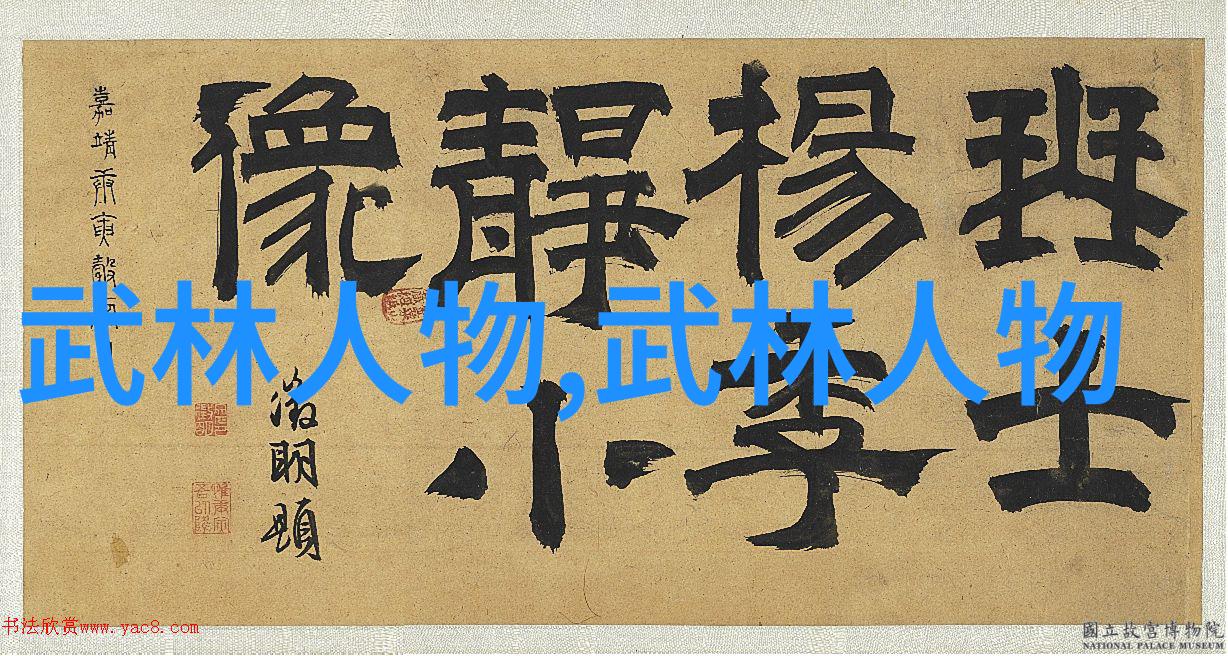 士
楊季
靜小
像
嘉靖庚寅穀
徵明題
武林人物,武林人物
书法欣赏www.yac8.com
國立故宮博物院
NATIONAL PALACE MUSEUM